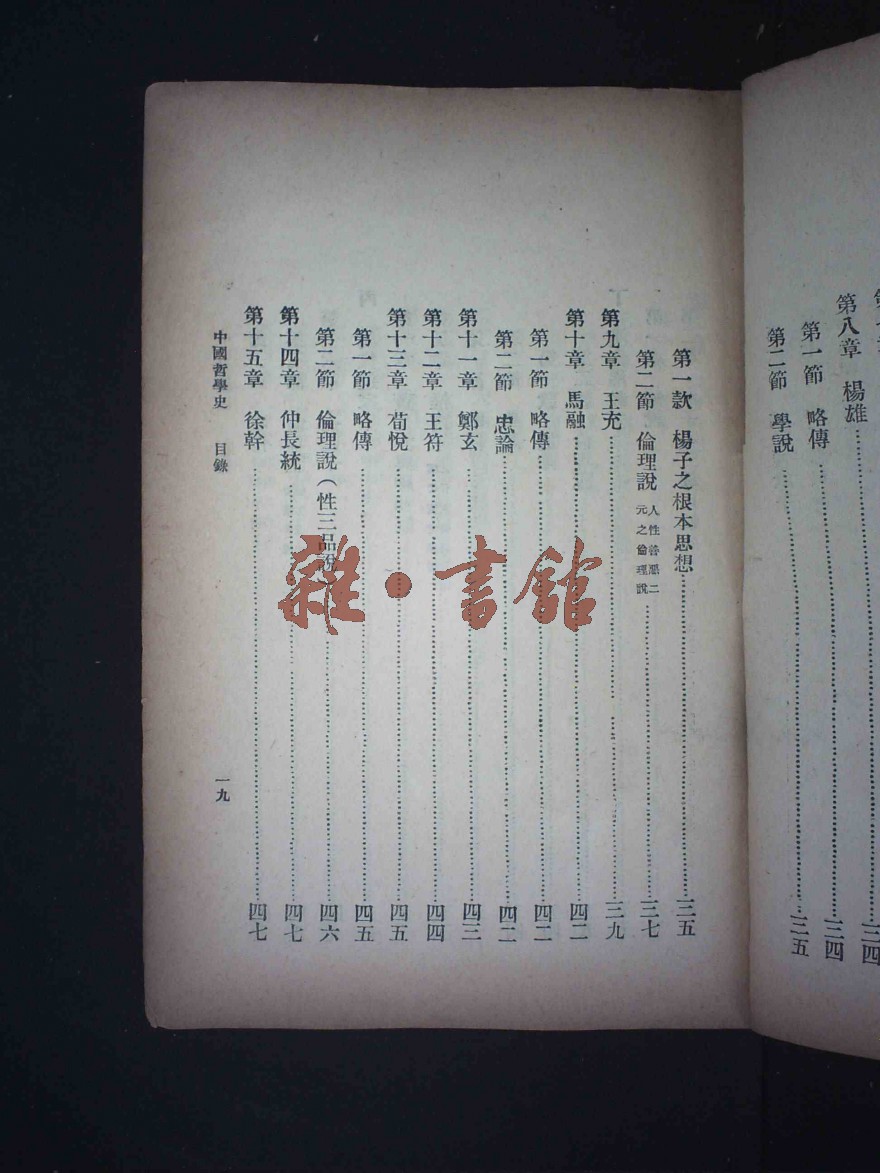 第八章 楊雄 三四
第一節 略傳 三四
第二節 學說 三五
第一款 楊子之根本思想 三五
第二節 倫理說 人性善惡二元之倫理說 三七
第九章 王充 三九
第十章 馬融 四二
第一節 略傳 四二
第二節 忠論 四二
第十一章 鄭玄 四三
第十二章 王符 四四
第十三章 荀悅 四五
第一節 略傳 四五
第二節 倫理說(性三品說) 四六
第十四章 仲長統 四七
第十五章 徐幹 四七
中國哲學史 目錄 一九
雜·書館